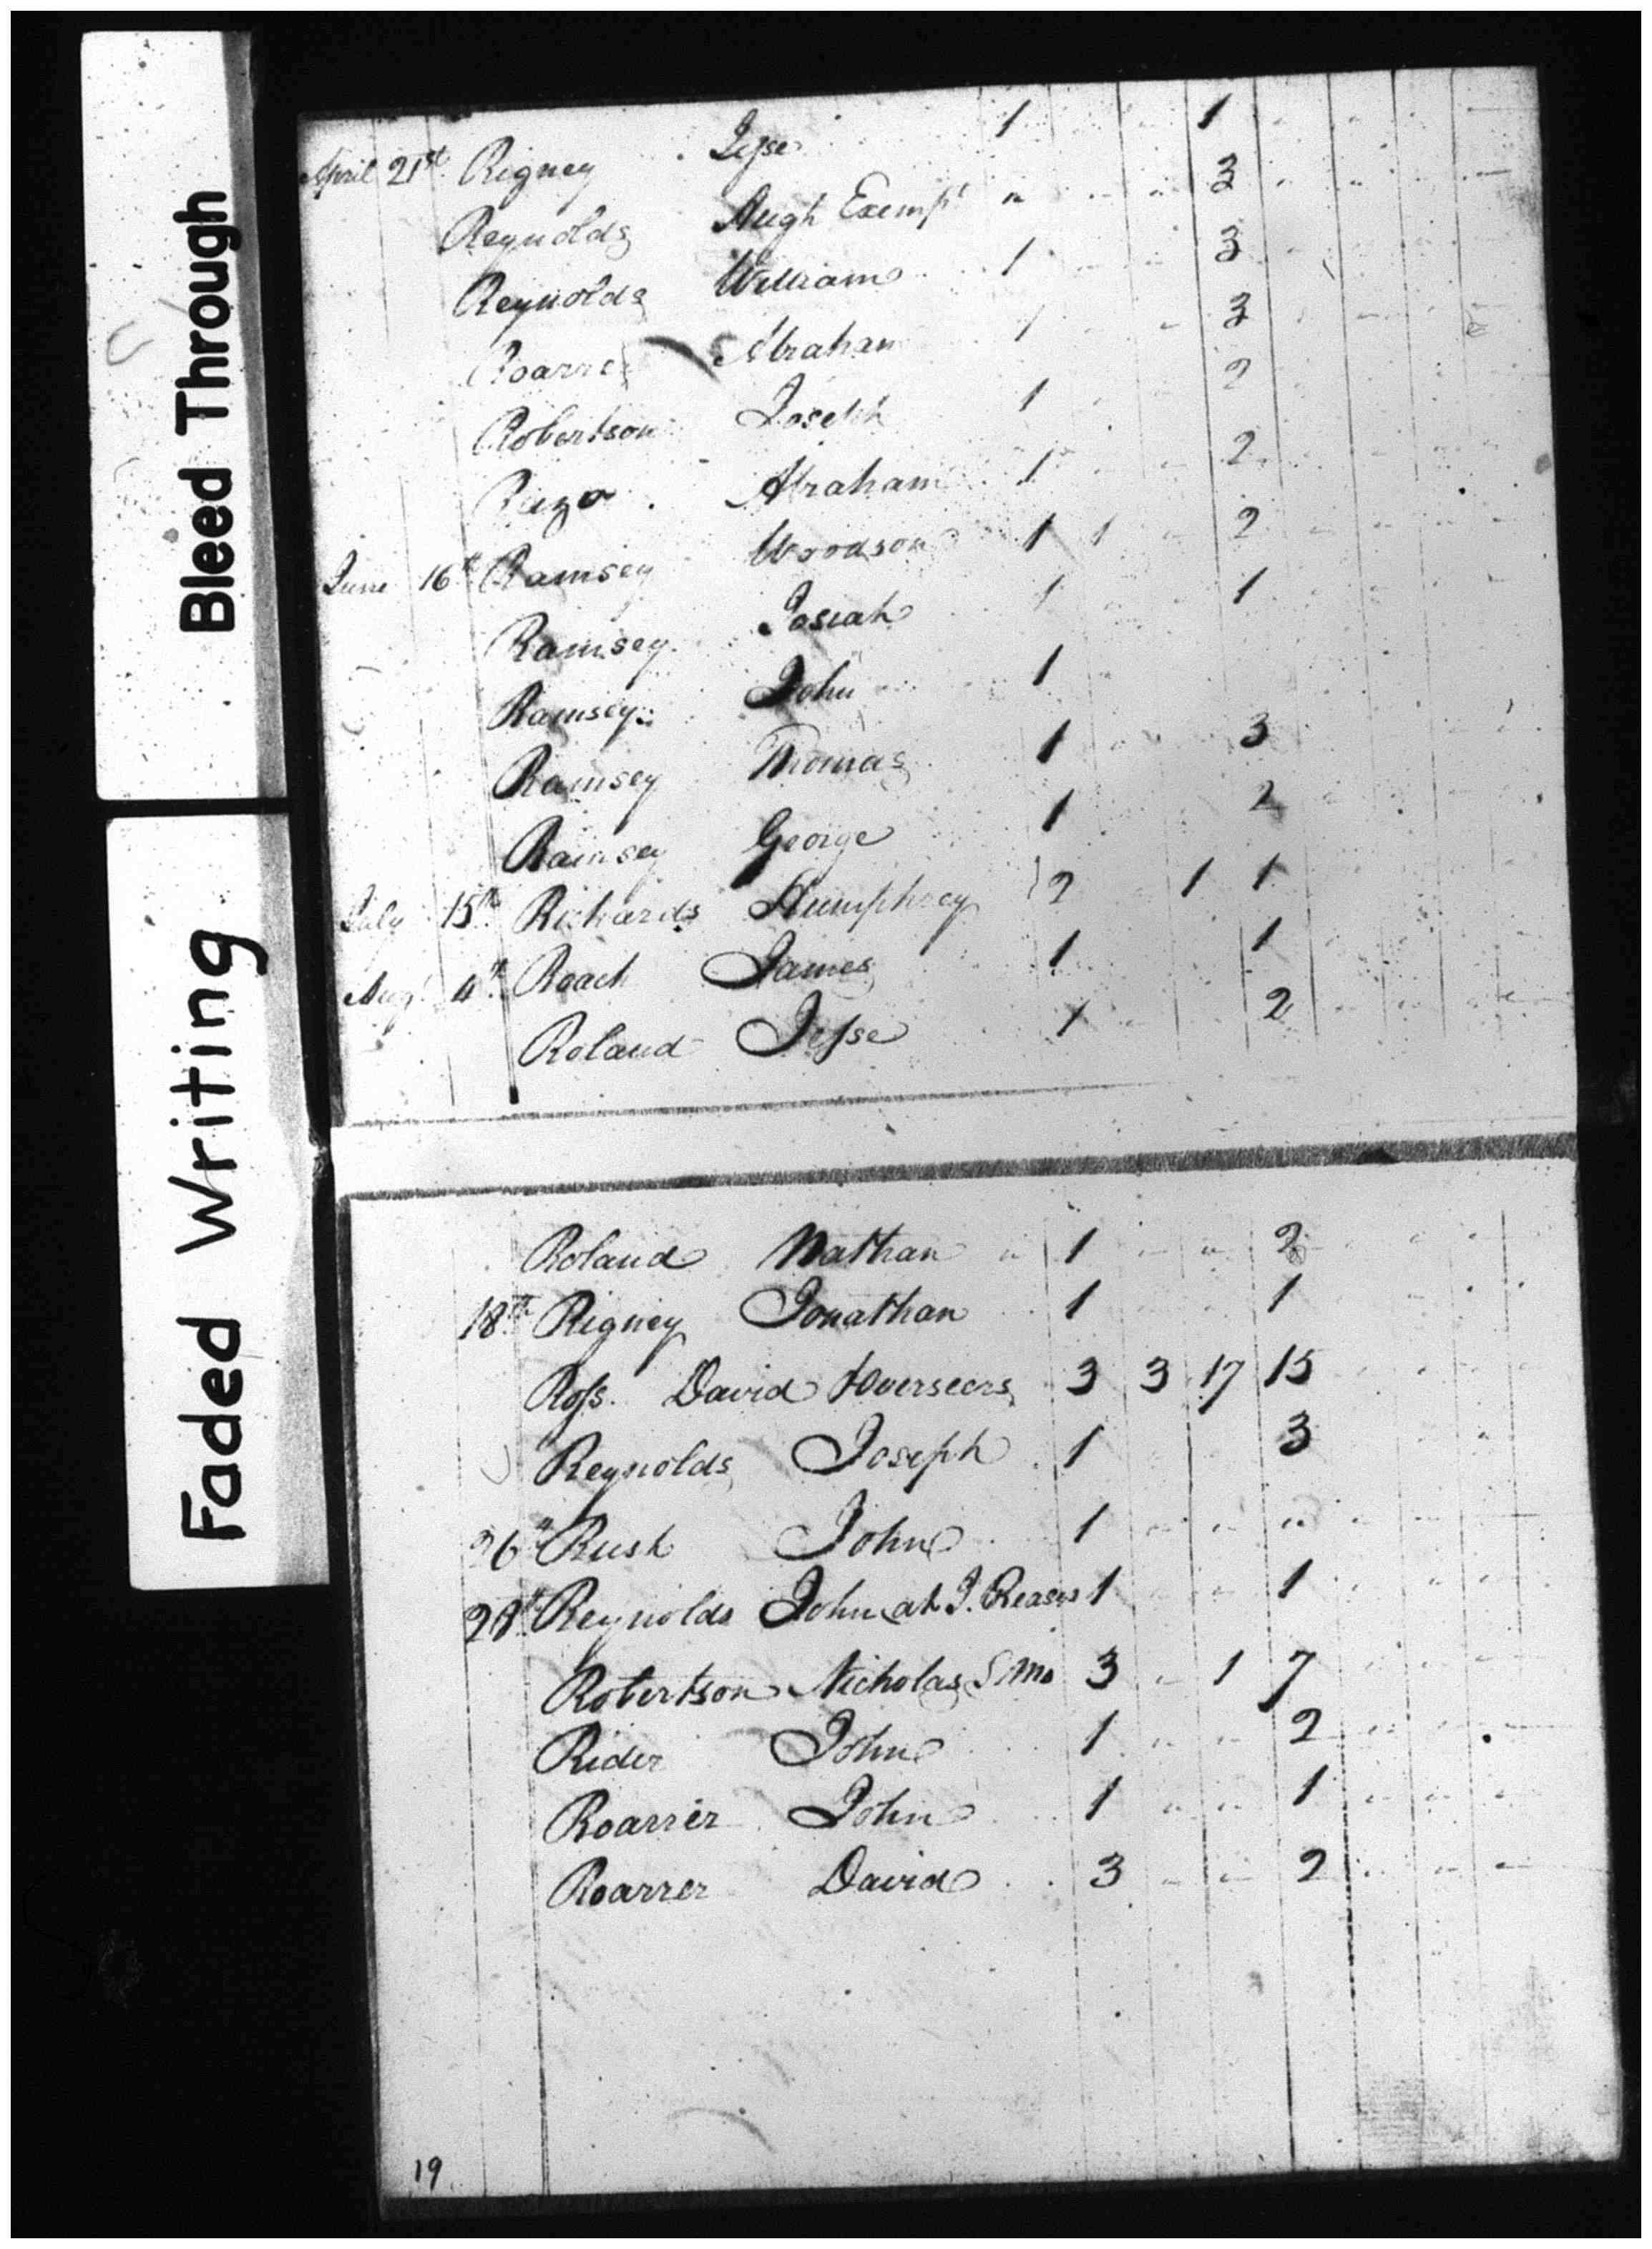 Bleed Through
Faded Writing
April 21st Rigney Jesse 1 1
Reynolds Hugh Exempt " 3
Reynolds William 1 3
Roarrer Abraham 1 3
Robertson Joseph 1 2
Abraham 1 2
June 16th Ramsey Woodson 1 1 2
Ramsey Josiah 1 1
Ramsey John 1
Ramsey Thomas 1 3
Ramsey George 1 2
July 15th Richards Humphrey 2 1 1
Augt 4th Roach James 1 1
Roland Jesse 1 2
Roland Nathan " 1 " " 2
18th Rigney Jonathan 1 1
Ross David & Overseers 3 3 17 15
Reynolds Joseph 1 3
26th Rush John 1 " " "
28th Reynolds John at J. Reases 1 1
Robertson Nicholas 3 " 1 7
Rider John 1 " " 2
Roarrer John 1 " " 1
Roarrer David 3 " " 2
19